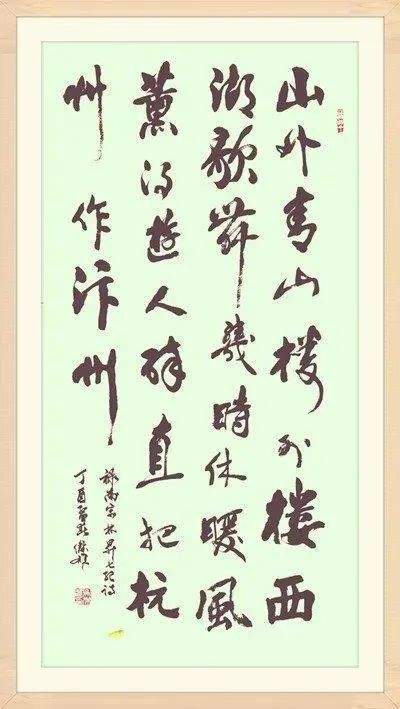 山外青山楼外樓西
湖歌舞幾時休暖風
薰得遊人醉直把杭
州作汴州
録南宋林昇七绝诗
丁酉